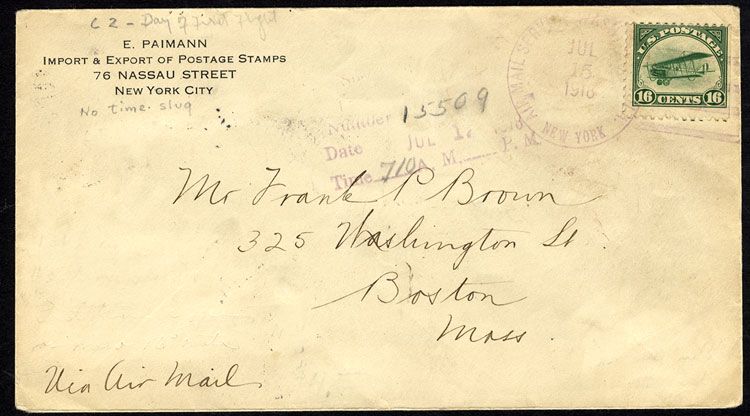 C2 - Day of First Flight
E. PAIMANN
IMPORT & EXPORT OF POSTAGE STAMPS
76 NASSAU STREET
NEW YORK CITY
No time slug
AIR MAIL SERVICE
JUL
15
1918
NEW YORK
U.S. POSTAGE
16 CENTS 16
Number 15509
Date JUL
Time 710 A. M. P. M.
Mr Frank P Brown
325 Washington St
Boston
Mass.
Via Air Mail